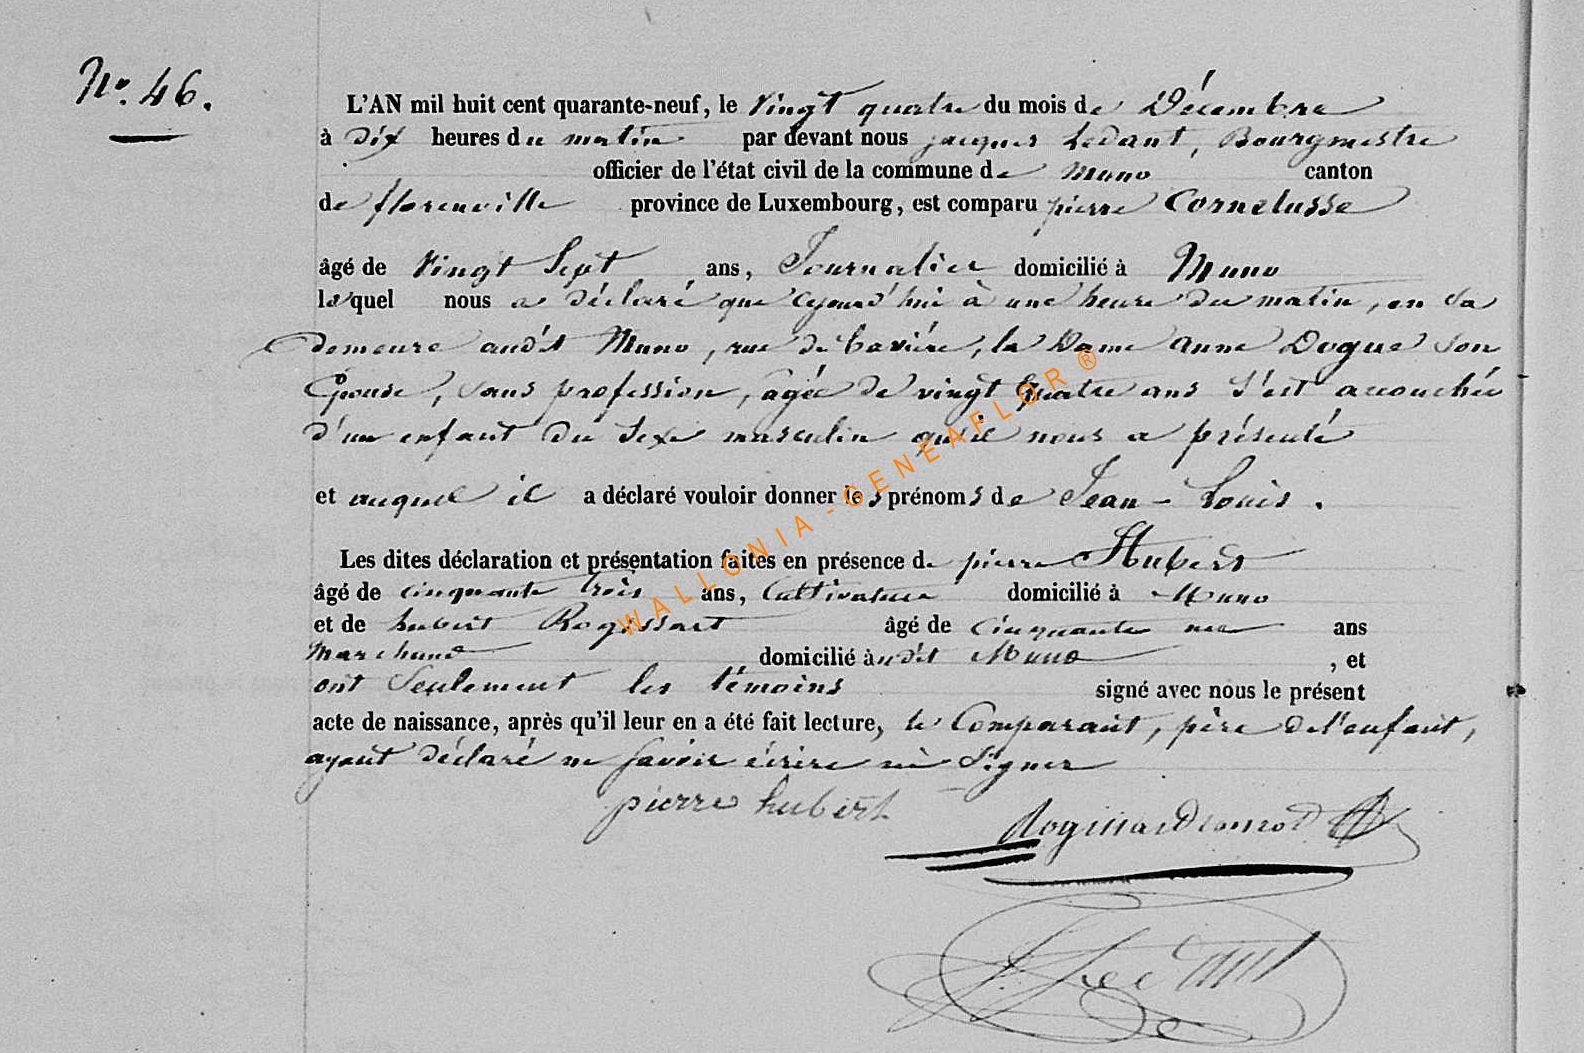 No. 46.
L'AN mil huit cent quarante-neuf, le Vingt quatre du mois de Décembre
à dix heures du matin par devant nous jacques Ledant, Bourgmestre
officier de l'état civil de la commune de Muno canton
de florenville province de Luxembourg, est comparu pierre Cornelusse
âgé de Vingt Sept ans, Journalier domicilié à Muno
lequel nous a déclaré que cejourd'hui à une heure du matin, en Sa
demeure audit Muno, rue de baviére, la Dame anne Dogue Son
Epouse, Sans profession, agée de vingt quatre ans S'est accouchée
d'un enfant du Sexe masculin qu'il nous a présenté
et auquel il a déclaré vouloir donner les prénoms de Jean-Louis.
Les dites déclaration et présentation faites en présence de pierre Hubert
âgé de cinquante trois ans, Cultivateur domicilié à Muno
et de hubert Rogissart âgé de cinquante un ans
Marchand domicilié àudit Muno, et
ont Seulement les témoins signé avec nous le présent
acte de naissance, après qu'il leur en a été fait lecture, le Comparant, père de l'enfant,
ayant déclaré ne Savoir écrire ni Signer
pierre hubert
Ledant
WALLONIA-GENEAFLOR®